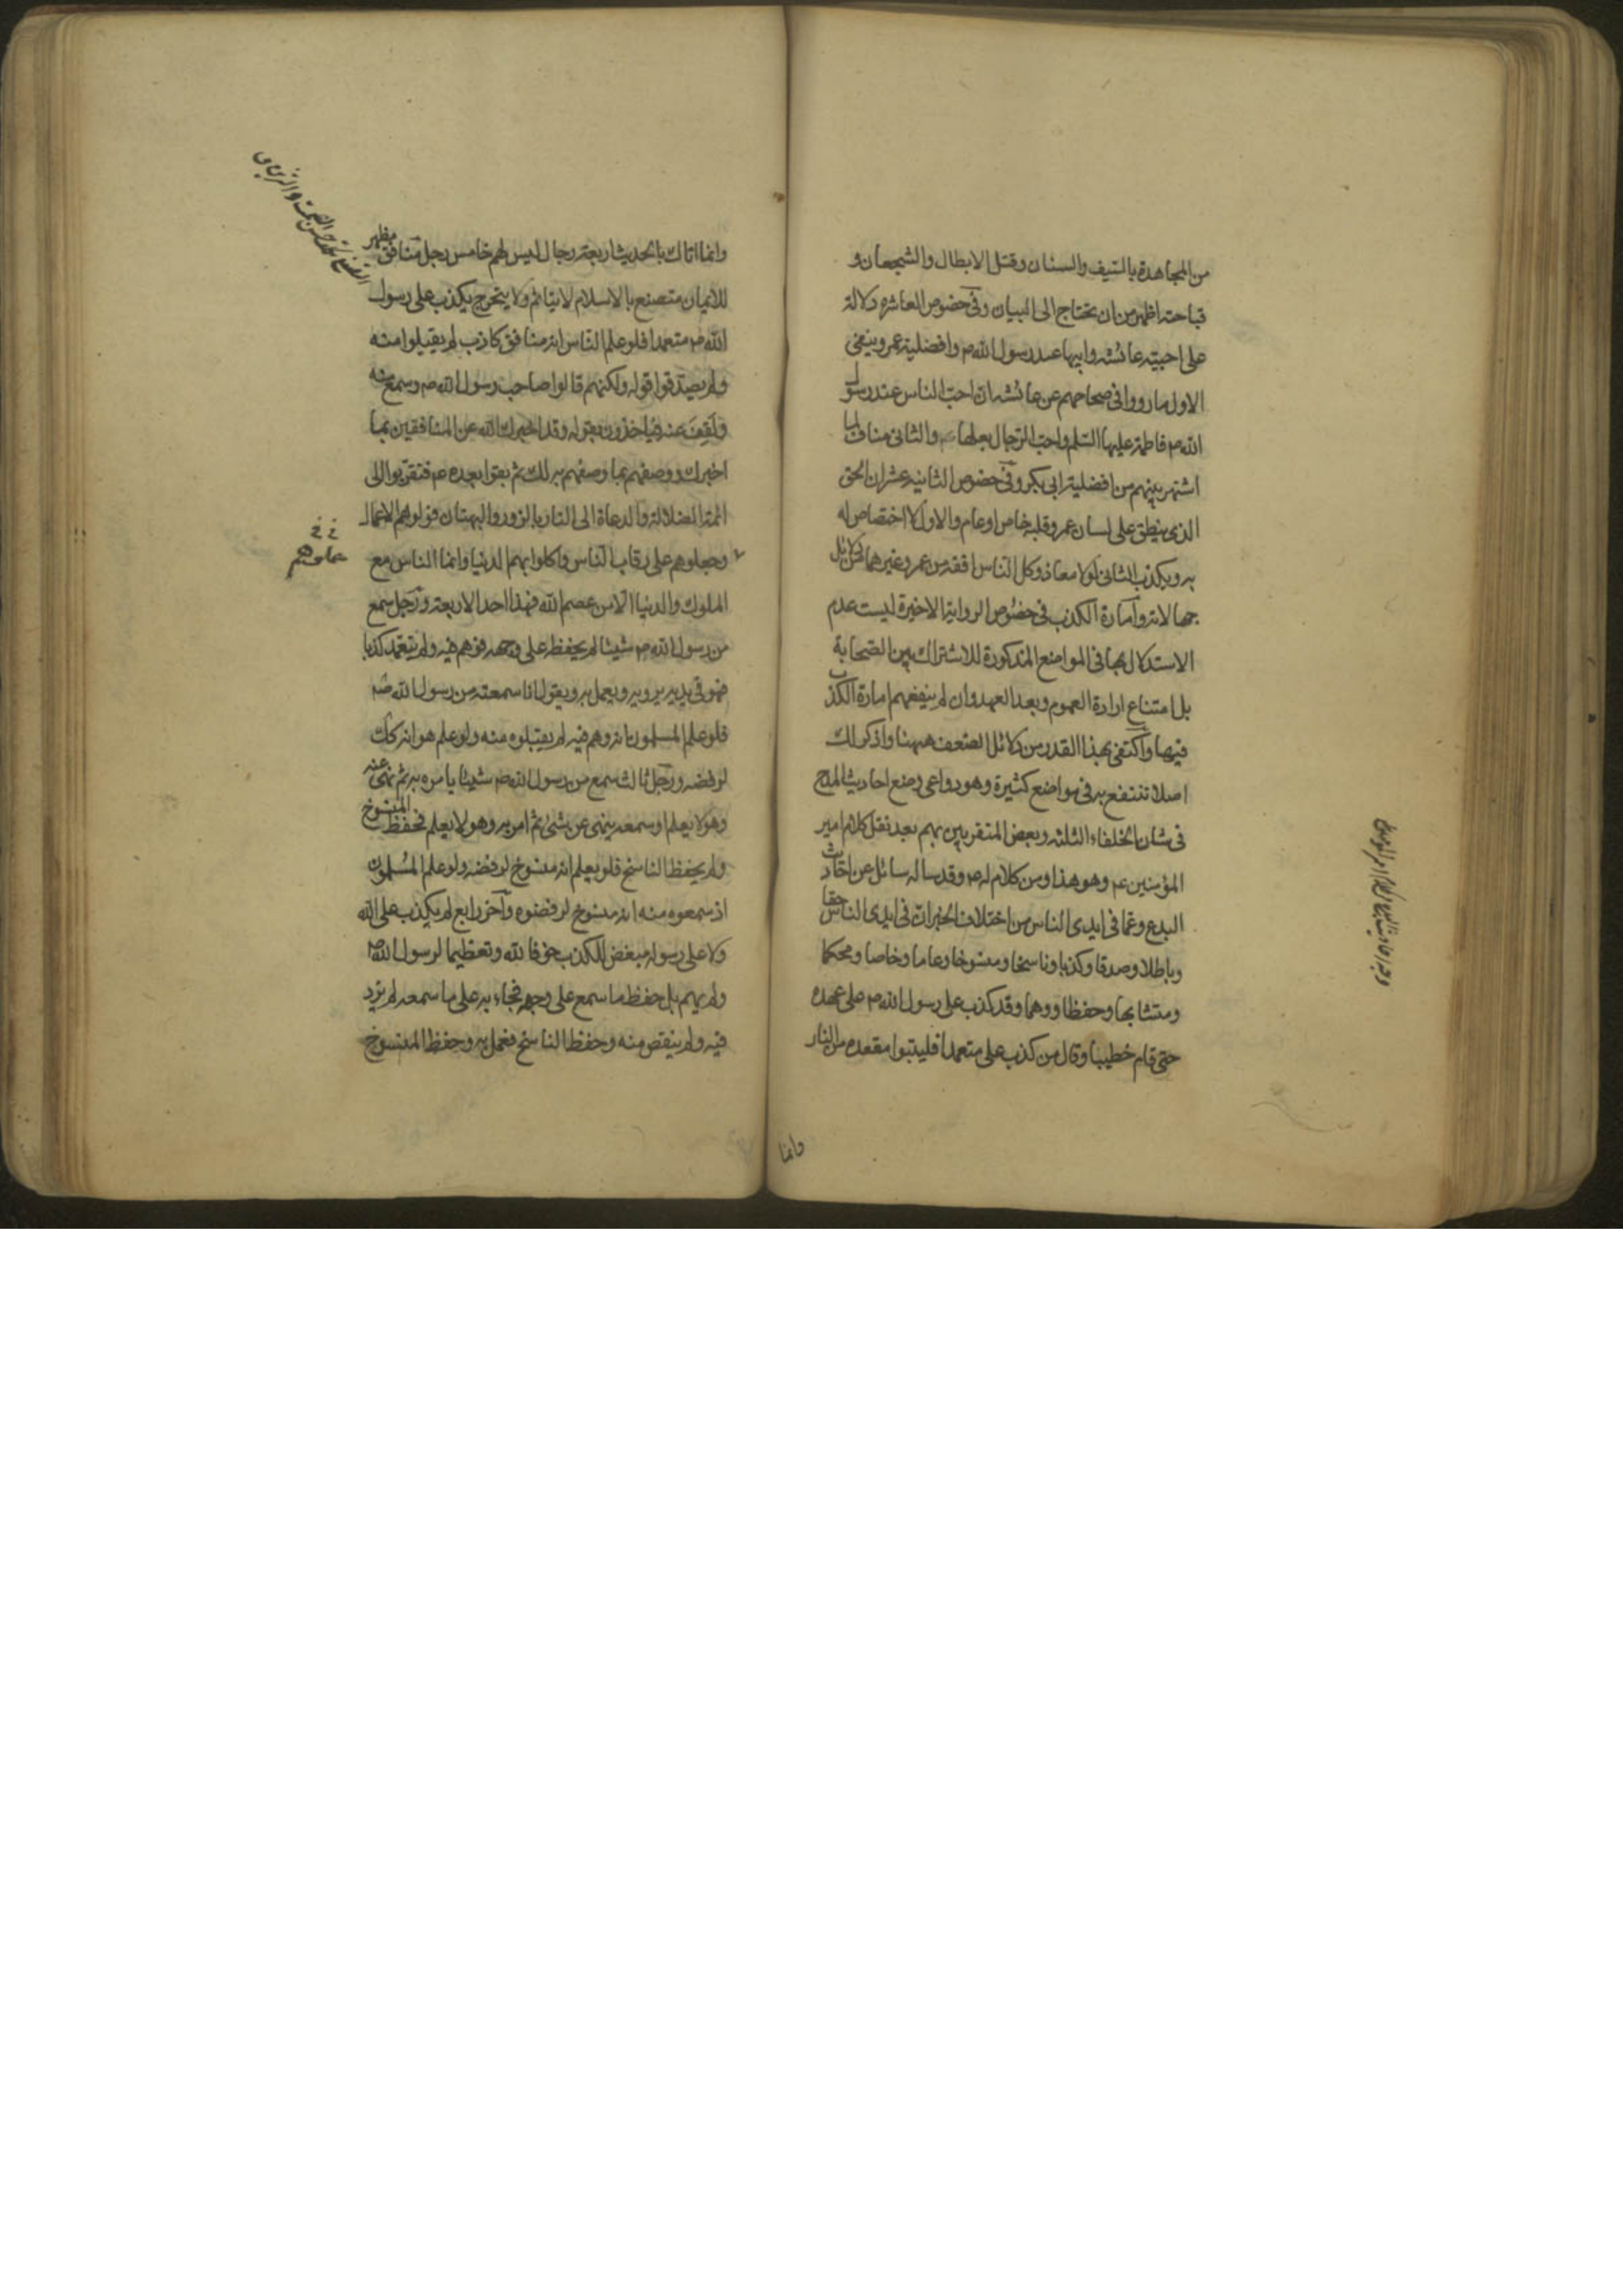 من المجاهدة بالسيف والسنان وقتل الابطال والشجعان و
قباحته اظهر من ان يحتاج الى البيان وفى خصوص العاشره دلالة
على احبية عائشه وابيها عند رسول الله ص وافضلية عمر وينفى
الاول ما رووا فى صحاحهم عن عائشه ان احب الناس عند رسول
الله ص فاطمة عليها السلم واحب الرجال بعلها ع والثانى مناف لما
اشتهر بينهم من افضلية ابى بكر وفى خصوص الثانيه عشر ان الحق
الذى ينطق على لسان عمر وقلبه خاص او عام والاول لا اختصاص له
به ويكذب الثانى لولا معاذ وكل الناس افقه من عمر وغيرهما من دلائل
جهالاته وامارة الكذب فى خصوص الرواية الاخيرة ليست عدم
الاستدلال بها فى المواضع المذكورة للاشتراك بين الصحابة
بل امتناع ارادة العموم وبعد العهد وان لم ينفعهم امارة الكذب
فيها واكتفى بهذا القدر من دلائل الضعف ههنا واذكر لك
اصلا تنتفع به فى مواضع كثيرة وهو دواعى وضع احاديث المدح
فى شان الخلفاء الثلثه وبعض المتقربين بهم بعد نقل كلام امير
المؤمنين ع وهو هذا ومن كلام له ع وقد ساله سائل عن احاديث
البدع وعما فى ايدى الناس من اختلاف الخبر ان فى ايدى الناس حقا
وباطلا وصدقا وكذبا وناسخا ومنسوخا وعاما وخاصا ومحكما
ومتشابها وحفظا ووهما وقد كذب على رسول الله ص على عهده
حتى قام خطيبا وقال من كذب على متعمدا فليتبوا مقعده من النار
وانما
وانما اتاك بالحديث اربعة رجال ليس لهم خامس رجل منافق مظهر
للايمان متصنع بالاسلام لا يتاثم ولا يتحرج يكذب على رسول
الله ص متعمدا فلو علم الناس انه منافق كاذب لم يقبلوا منه
ولم يصدقوا قوله ولكنهم قالوا صاحب رسول الله ص وسمع منه
ولقف عنه فياخذون بقوله وقد اخبرك الله عن المنافقين بما
اخبرك ووصفهم بما وصفهم به لك ثم بقوا بعده ع فتقربوا الى
ائمة الضلالة والدعاة الى النار بالزور والبهتان فولوهم الاعمال
وجعلوهم على رقاب الناس واكلوا بهم الدنيا وانما الناس مع
حملوهم
الملوك والدنيا الا من عصم الله فهذا احد الاربعة ورجل سمع
من رسول الله ص شيئا لم يحفظه على وجهه فوهم فيه ولم يتعمد كذبا
فهو فى يديه يرويه ويعمل به ويقول انا سمعته من رسول الله ص
فلو علم المسلمون انه وهم فيه لم يقبلوه منه ولو علم هو انه كذلك
لرفضه ورجل ثالث سمع من رسول الله ص شيئا يامر به ثم نهى عنه
وهو لا يعلم او سمعه ينهى عن شئ ثم امر به وهو لا يعلم فحفظ المنسوخ
ولم يحفظ الناسخ فلو يعلم انه منسوخ لرفضه ولو علم المسلمون
اذ سمعوه منه انه منسوخ لرفضوه وآخر رابع لم يكذب على الله
ولا على رسوله مبغض للكذب خوفا لله وتعظيما لرسول الله ص
ولم يهم بل حفظ ما سمع على وجهه فجاء به على ما سمعه لم يزد
فيه ولم ينقص منه وحفظ الناسخ فعمل به وحفظ المنسوخ